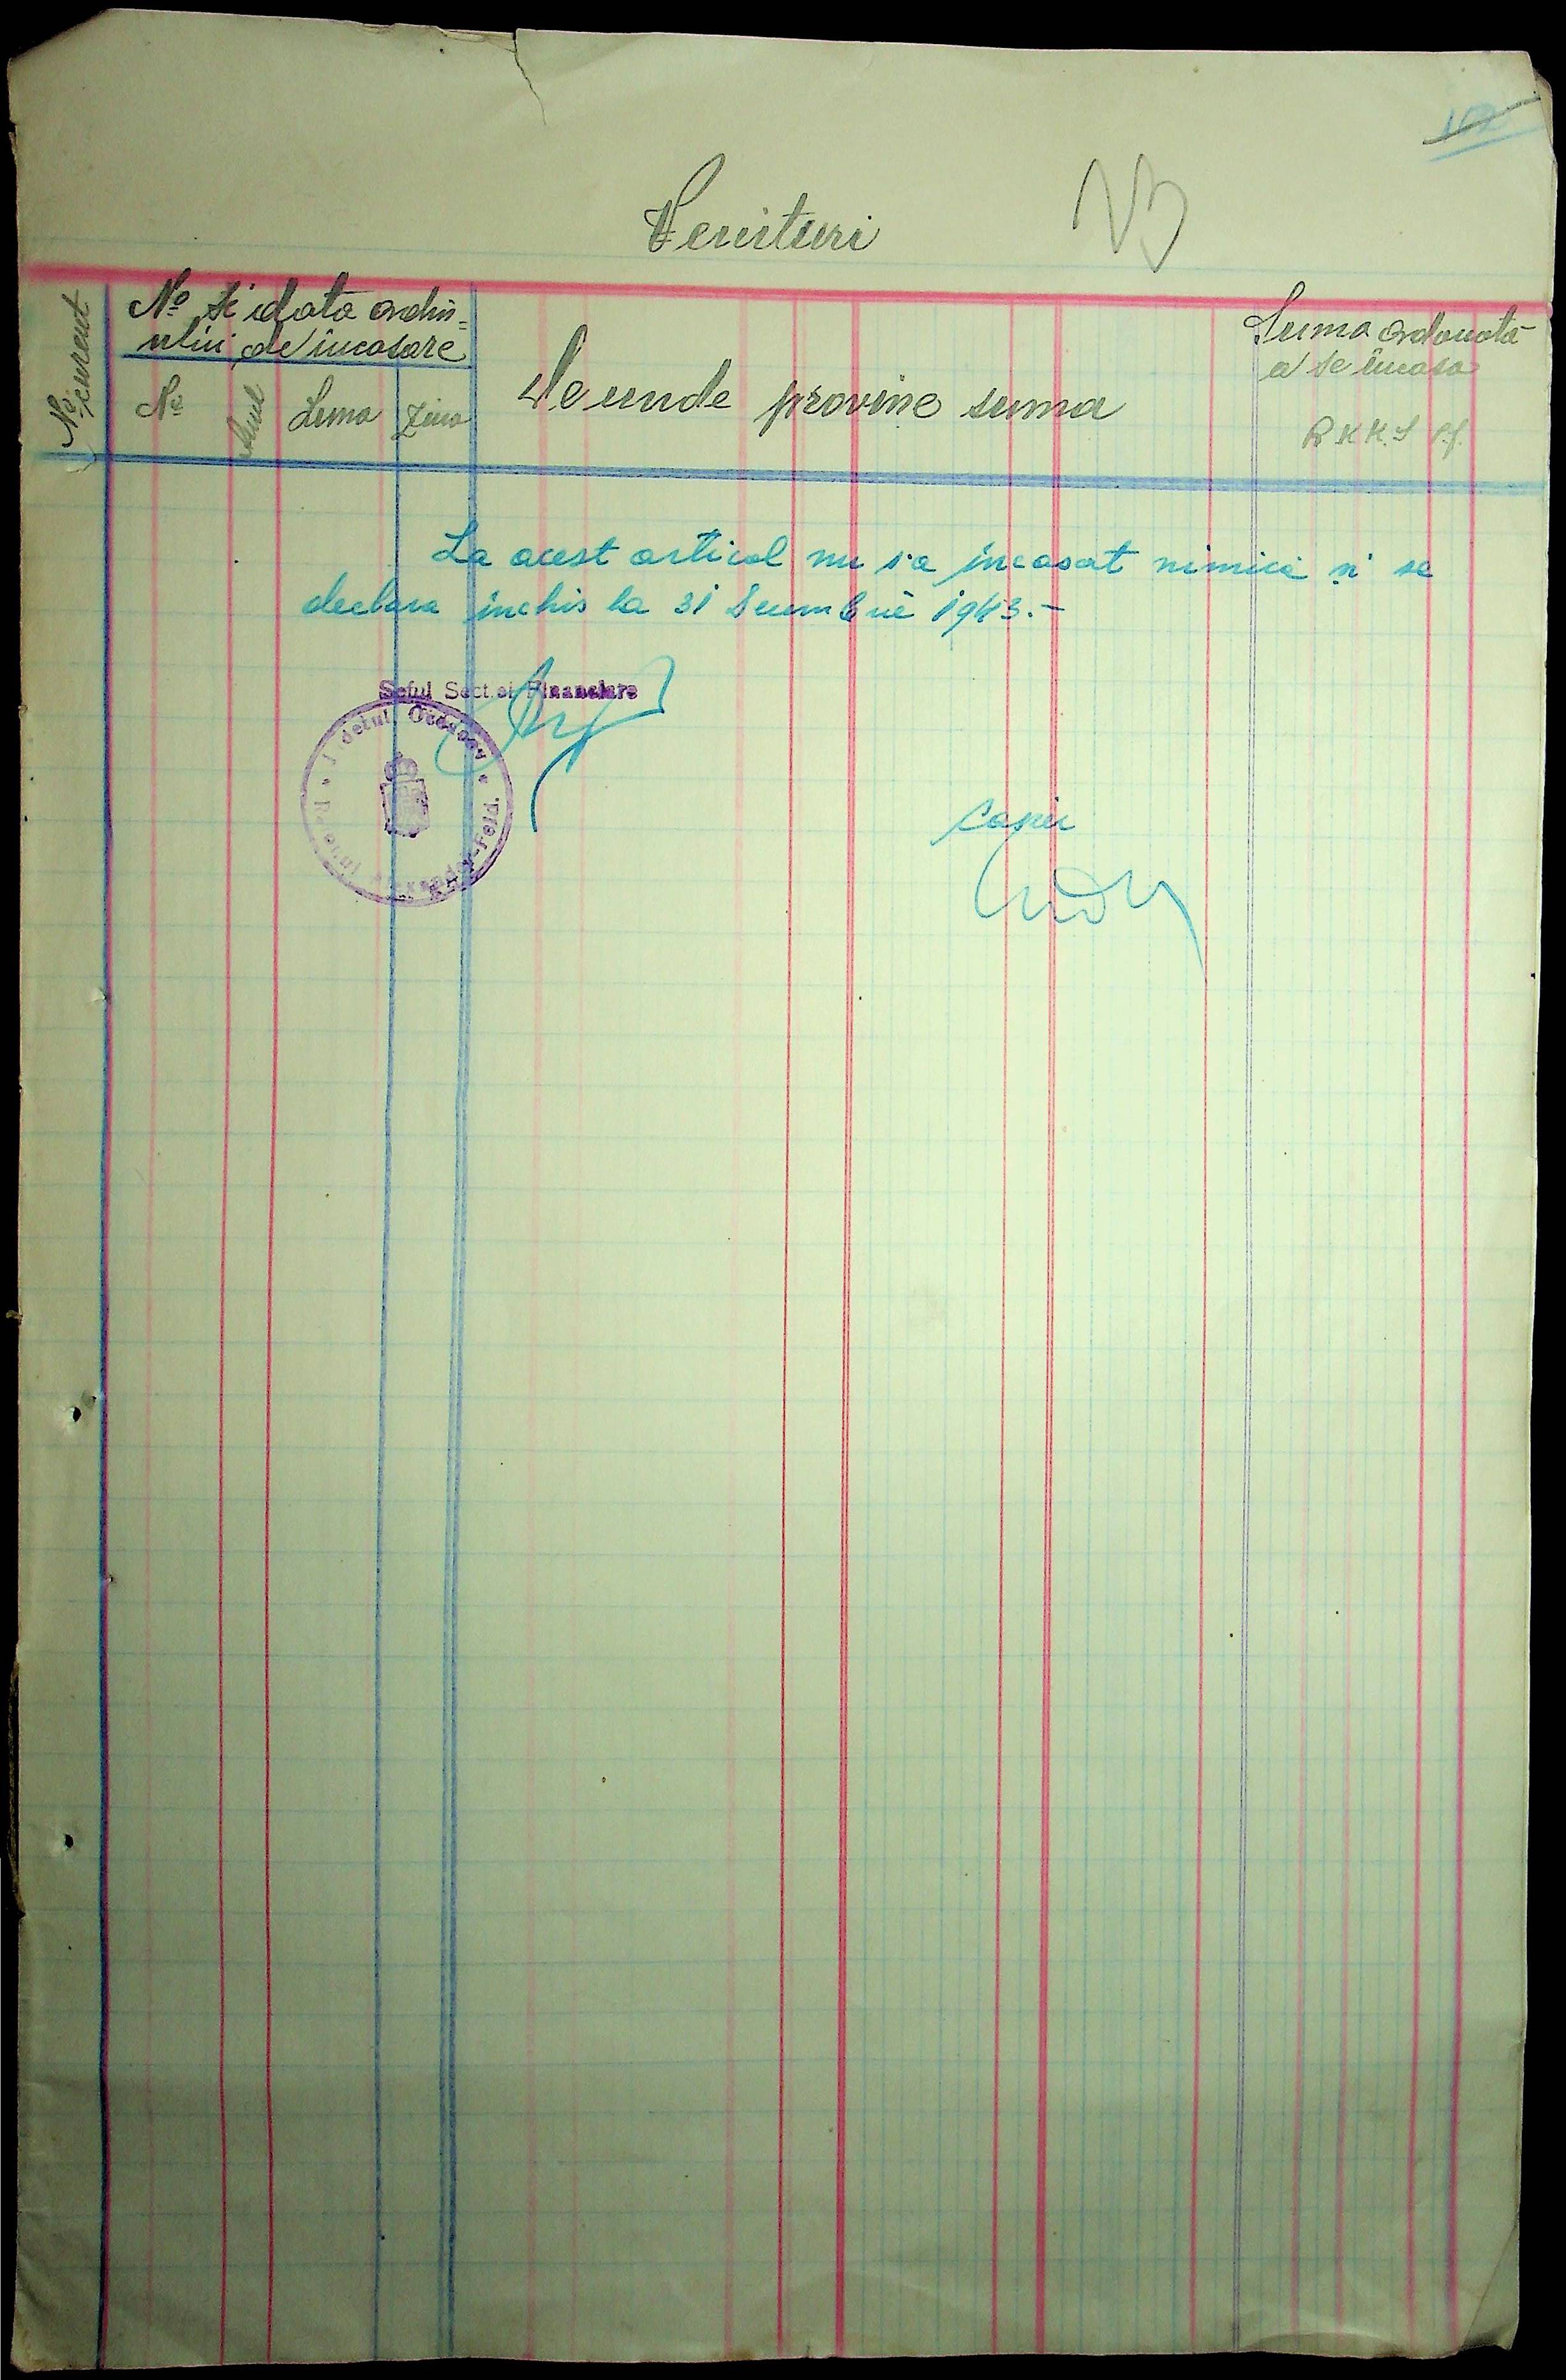 Venituri
No curent
No și data ordin=
ului de încasare
No
Anul
Luna
Ziua
De unde provine suma
Suma ordonată
a se încasa
R.K.K.S Pf.
La acest articol nu s'a încasat nimica și se
declara inchis la 31 Decembrie 1943.-
Șeful Secției Financiare
Județul Oceacov
Raionul Alexander-Feld.
Casier